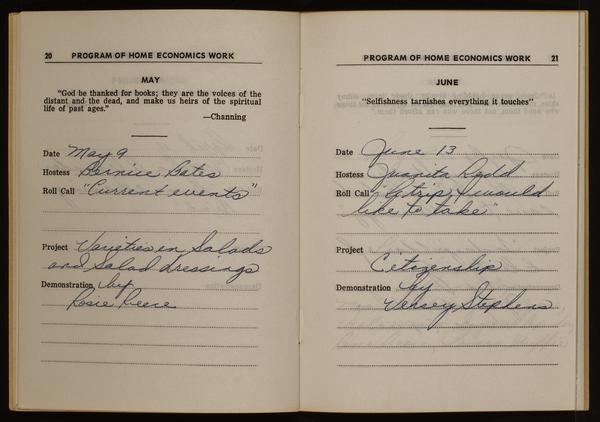 20 PROGRAM OF HOME ECONOMICS WORK
MAY
"God be thanked for books; they are the voices of the
distant and the dead, and make us heirs of the spiritual
life of past ages."
—Channing
Date May 9
Hostess Bernice Bates
Roll Call "Current events"
Project Varieties in Salads
and Salad dressings
Demonstration by
Rosie Reece
PROGRAM OF HOME ECONOMICS WORK 21
JUNE
"Selfishness tarnishes everything it touches"
Date June 13
Hostess Juanita Rydd
Roll Call "A trip I would
like to take"
Project
Citizenship
Demonstration by
Versey Stephens